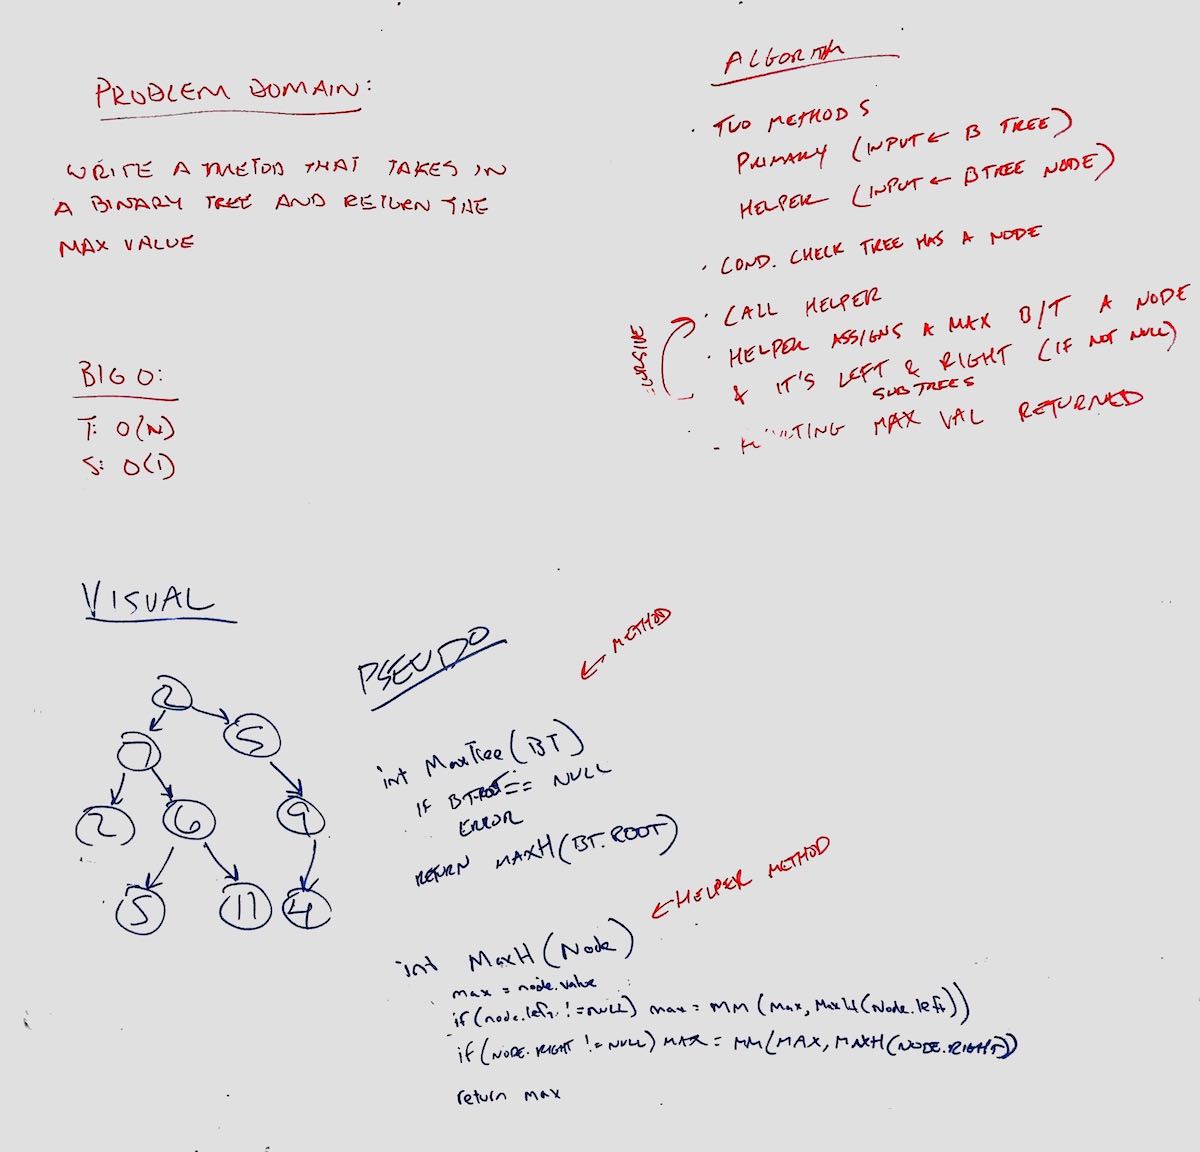 PROBLEM DOMAIN:
WRITE A METOD THAT TAKES IN
A BINARY TREE AND RETURN THE
MAX VALUE
BIG O:
T: O(N)
S: O(1)
ALGORITM
· TWO METHODS
PRIMARY (INPUT ← B TREE)
HELPER (INPUT ← BTREE NODE)
· COND. CHECK TREE HAS A NODE
· CALL HELPER
· HELPER ASSIGNS A MAX B/T A NODE
& IT'S LEFT & RIGHT (IF NOT NULL)
SUBTREES
· MAX VAL RETURNED
VISUAL
2
7
5
2
6
9
5
11
4
PSEUDO
← METHOD
int MaxTree(BT)
IF BT.ROOT == NULL
ERROR
RETURN MAXH(BT.ROOT)
← HELPER METHOD
int MaxH(Node)
max = node.value
if(node.left != NULL) max = MM(Max, MaxH(Node.left))
if(NODE.RIGHT != NULL) MAX = MM(MAX, MAXH(NODE.RIGHT))
return max